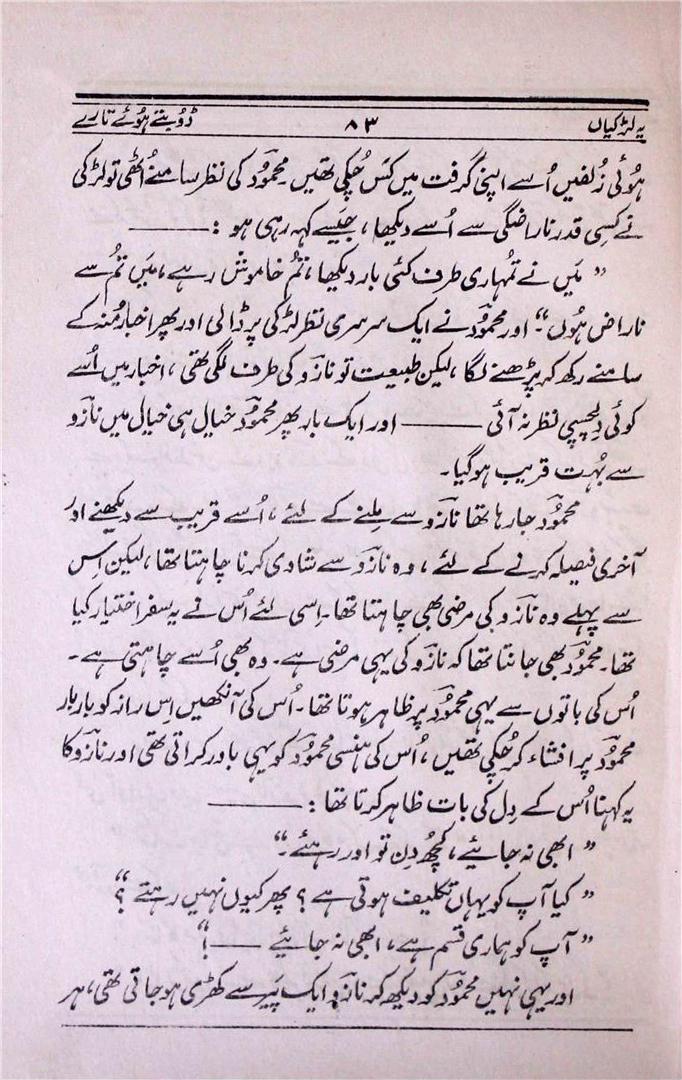 یہ لڑکیاں ۸۳ ڈوبتے ہُوئے تارے
ہُوئی زُلفیں اُسے اپنی گرفت میں کَس چُکی تھیں۔ محمودؔ کی نظر سامنے اُٹھی تو لڑکی
نے کِسی قدر ناراضگی سے اُسے دیکھا، جیسے کہہ رہی ہو :———
” مَیں نے تُمہاری طرف کئی بار دیکھا، تُم خاموش رہے، مَیں تُم سے
ناراض ہُوں۔“ اور محمودؔ نے ایک سرسری نظر لڑکی پر ڈالی اور پھر اخبار مُنہ کے
سامنے رکھ کر پڑھنے لگا، لیکن طبیعت تو نازوؔ کی طرف لگی تھی، اخبار میں اُسے
کوئی دِلچسپی نظر نہ آئی ——— اور ایک بار پھر محمودؔ خیال ہی خیال میں نازوؔ
سے بہُت قریب ہوگیا۔
محمودؔ جا رہا تھا نازوؔ سے مِلنے کے لئے، اُسے قریب سے دیکھنے اور
آخری فیصلہ کرنے کے لئے، وہ نازوؔ سے شادی کرنا چاہتا تھا، لیکن اِس
سے پہلے وہ نازوؔ کی مرضی بھی چاہتا تھا۔ اِسی لئے اُس نے یہ سفر اختیار کیا
تھا۔ محمودؔ بھی جانتا تھا کہ نازوؔ کی یہی مرضی ہے۔ وہ بھی اُسے چاہتی ہے۔
اُس کی باتوں سے یہی محمودؔ پر ظاہر ہوتا تھا۔ اُس کی آنکھیں اِس راز کو بار بار
محمودؔ پر افشاء کر چُکی تھیں، اُس کی ہنسی محمودؔ کو یہی باور کراتی تھی اور نازوؔ کا
یہ کہنا اُس کے دِل کی بات ظاہر کرتا تھا :———
” ابھی نہ جائیے، کچھُ دِن تو اور رہئے۔“
” کیا آپ کو یہاں تکلیف ہوتی ہے؟ پھر کیوں نہیں رہتے؟“
” آپ کو ہماری قسم ہے، ابھی نہ جائیے ——!“
اور یہی نہیں محمودؔ کو دیکھ کر نازوؔ ایک پَیر سے کھڑی ہو جاتی تھی، ہر